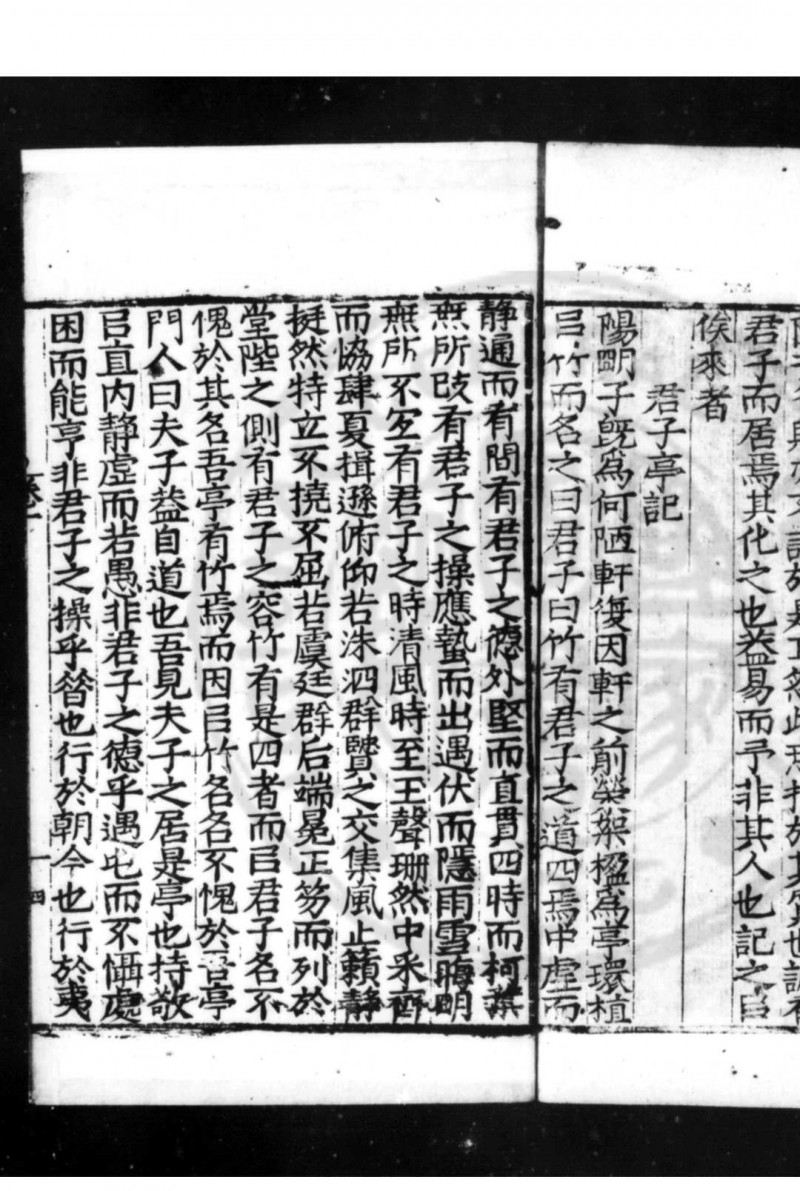 君子而居焉其化之也益易而予非其人也記之㠯
俟來者
君子亭記
陽朙子旣爲何陋軒復因軒之前榮架楹爲亭環植
㠯竹而名之曰君子曰竹有君子之道四焉中虛而
靜通而有間有君子之德外堅而直貫四時而柯葉
無所改有君子之操應蟄而出遇伏而隱雨雪晦朙
無所不宐有君子之時清風時至玉聲珊然中采齊
而協肆夏揖遜俯仰若洙泗群賢之交集風止籟靜
挺然特立不撓不屈若虞廷群后端冕正笏而列於
堂陛之側有君子之容竹有是四者而㠯君子名不
愧於其名吾亭有竹焉而因㠯竹名名不愧於吾亭
門人曰夫子葢自道也吾見夫子之居是亭也持敬
㠯直内靜虛而若愚非君子之德乎遇屯而不懾處
困而能亨非君子之操乎昝也行於朝今也行於夷
卷一
十四